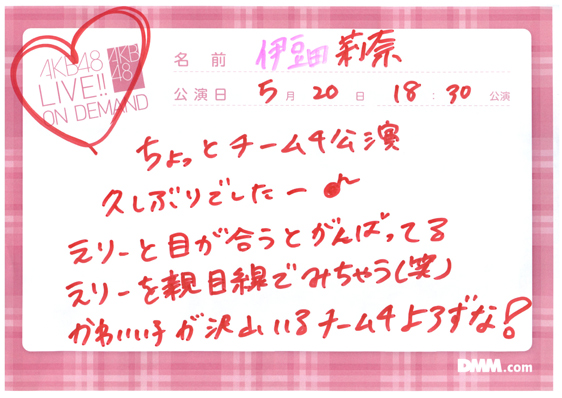 AKB48
LIVE!!
ON DEMAND
AKB
48
名前 伊豆田莉奈
公演日 5月20日 18:30公演
ちょっとチーム4公演
久しぶりでしたー♪
えりーと目が合うとがんばってる
えりーを親目線でみちゃう(笑)
かわいい子が沢山いるチーム4よろずな!
DMM.com